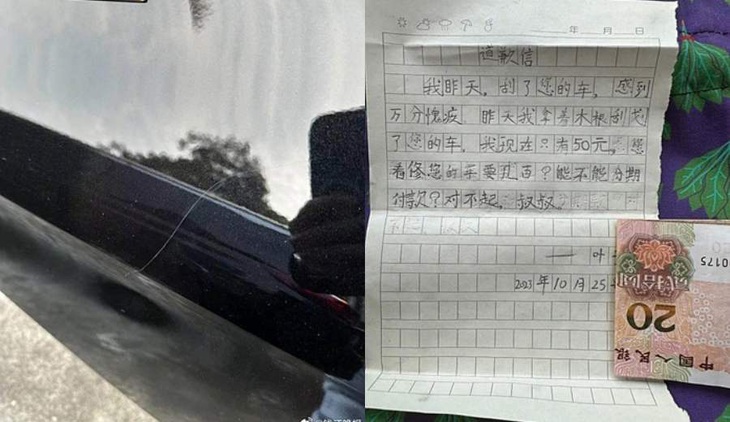 年 月 日
道歉信
我昨天,刮了您的车,感到
万分愧疚 昨天我拿着木棍刮花
了您的车,我现在只有50元,您
看修您的车要几百?能不能分期
付款?对不起,叔叔。
一叶
2023年10月25
0175
20
中国人民银